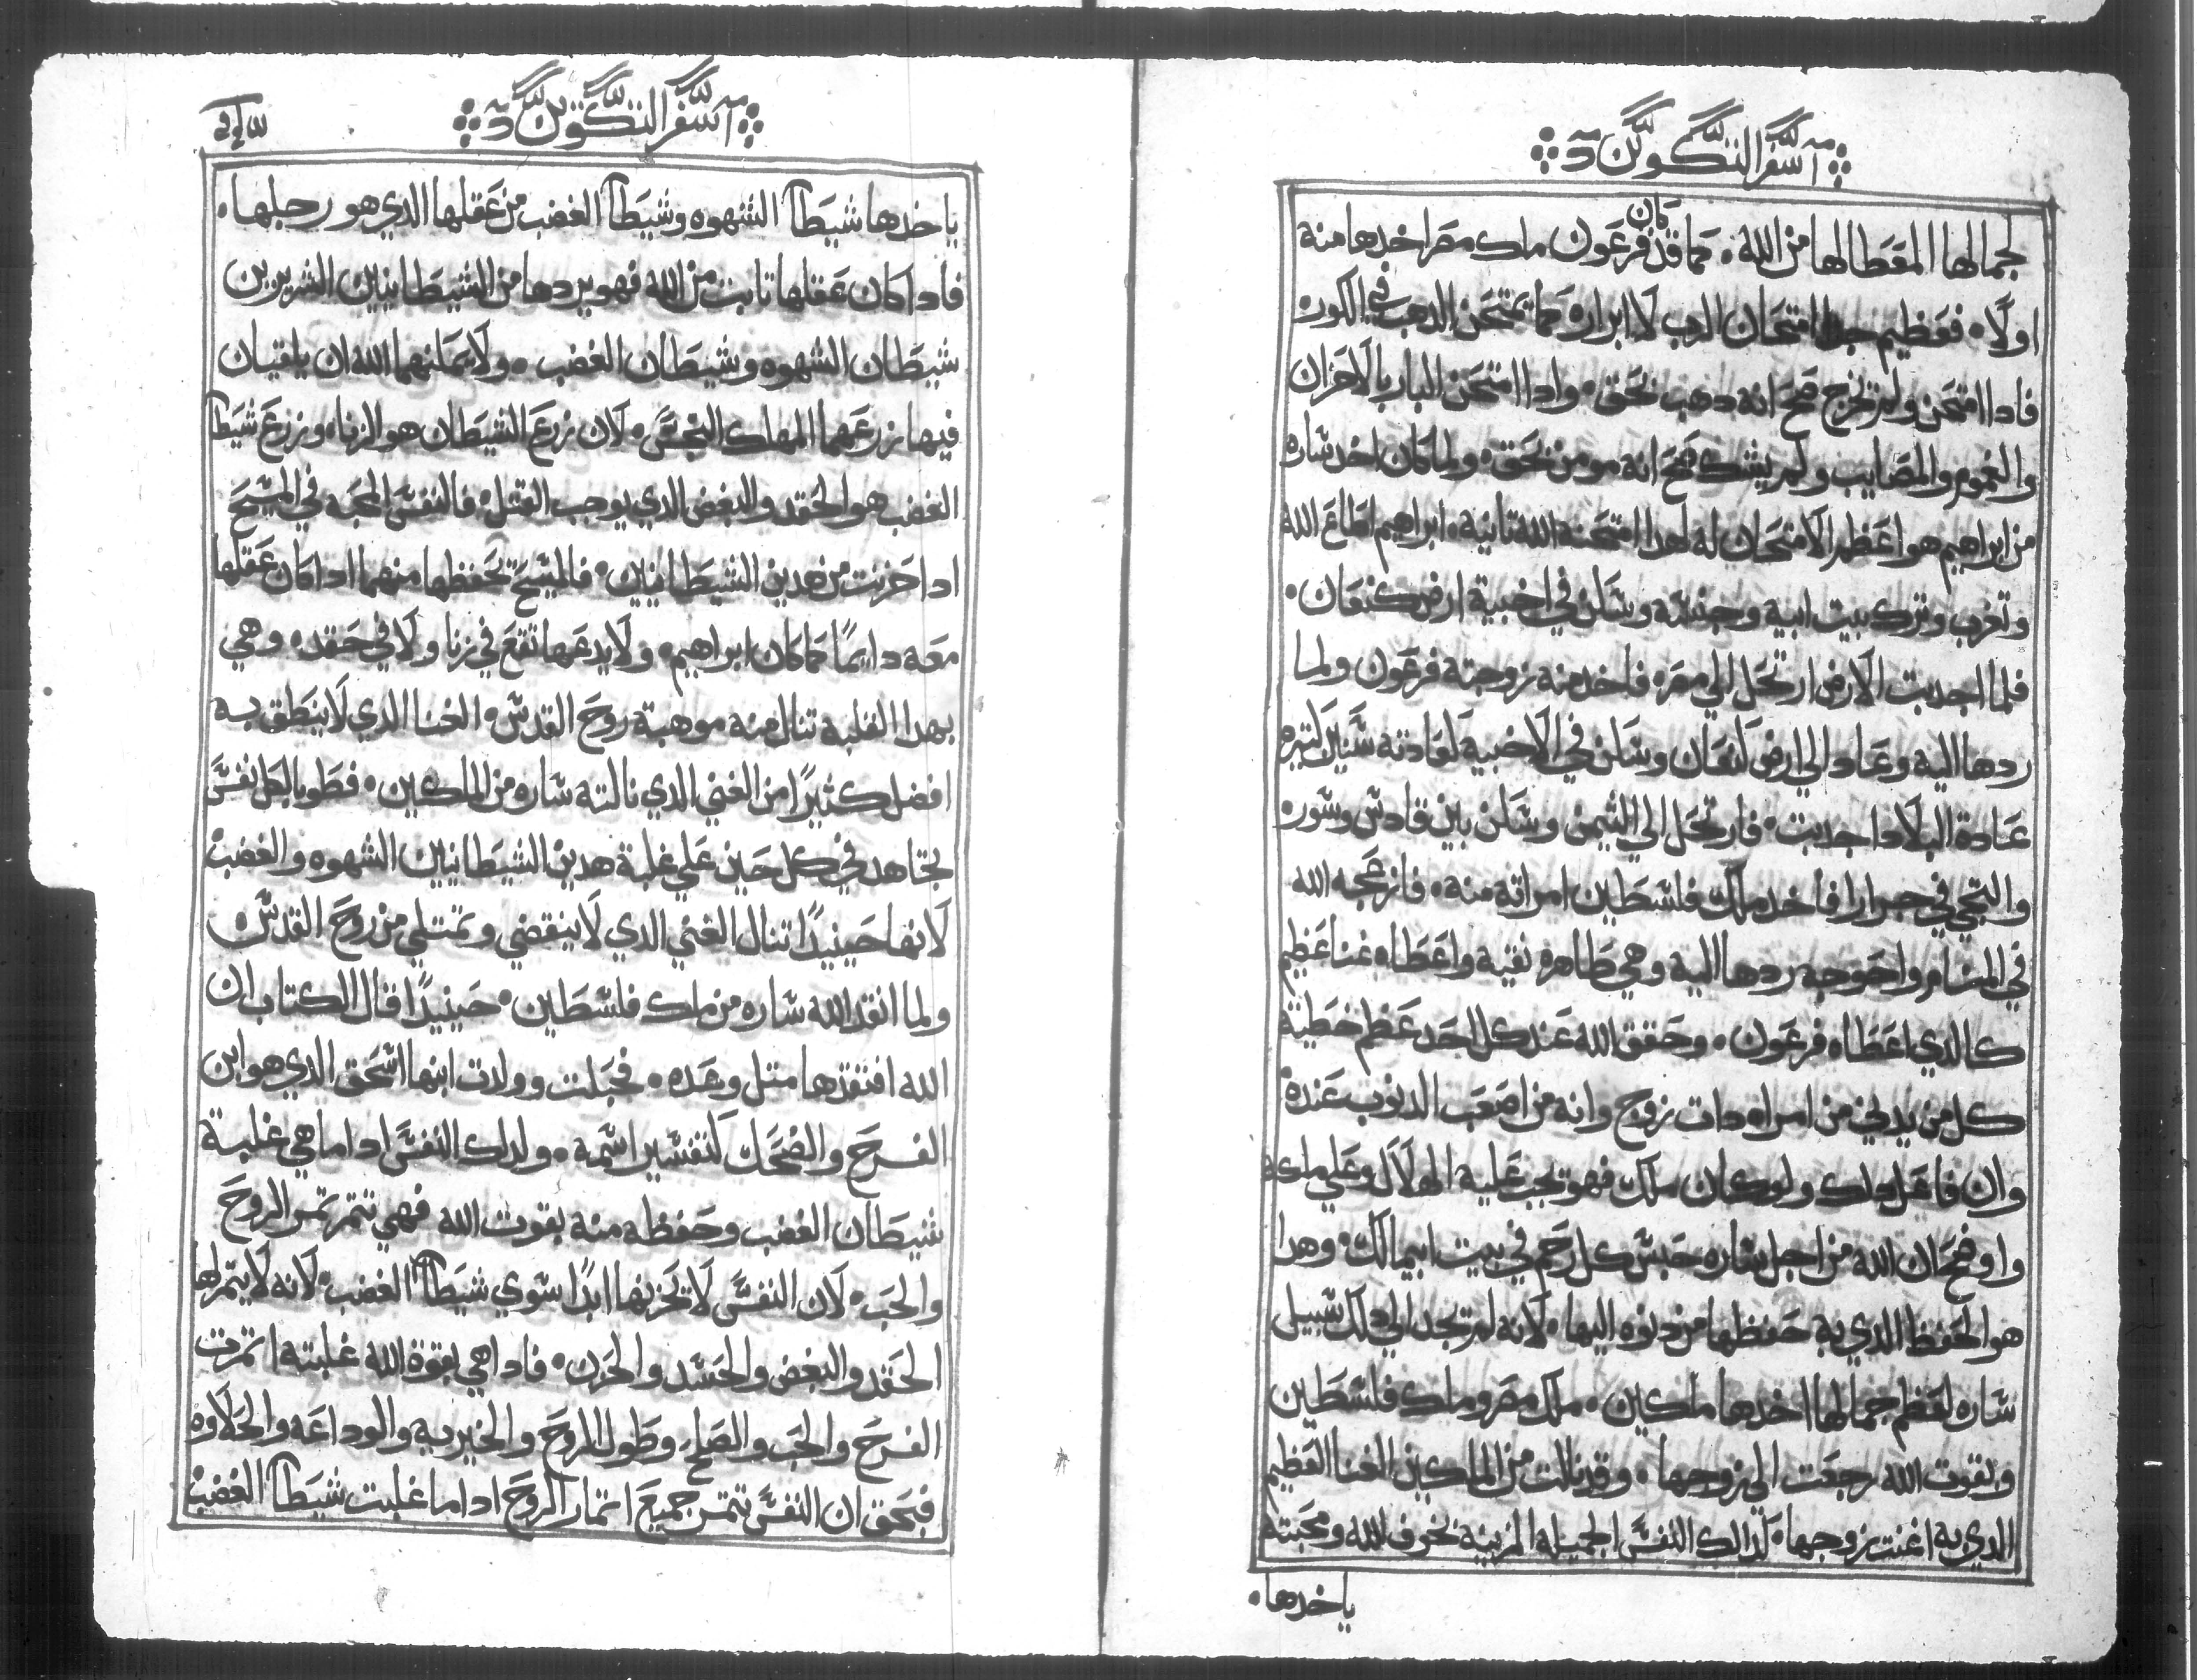 سفر التكوين
لجمالها المعطا لها من الله . كما قد كان فرعون ملك مصر اخدها منه
اولا . فعظيم جدا امتحان الرب لابراره كما يمتحن الدهب في الكوره
فادا امتحن ولم تخرج صح انه دهب بحق . وادا امتحن البار بالاحزان
والغموم والمصايب ولم يشك صح انه مومن بحق . ولما كان اخد ساره
من ابراهيم هو اعظم الامتحان له لهدا امتحنه الله تانية . ابراهيم اطاع الله
وتغرب وترك بيت ابيه وجنسه وسكن في اخبية ارض كنعان .
فلما اجدبت الارض ارتحل الي مصر فاخد منه زوجته فرعون ولما
ردها اليه وعاد الي ارض كنعان وسكن في الاخبيه كعادته سنين كتيره
عادة البلاد اجدبت . فارتحل الي التيمن وسكن بين قادس وسور
والتجي في جرارا فاخد ملك فلسطين امراته منه . فازعجه الله
في المنام واحوجه ردها اليه وهي طاهره نقيه واعطاه غنا عظيم
كالدي اعطاه فرعون . وحقق الله عند كل احد عظم خطية
كل من يدني من امراه دات زوج وانه من اصعب الدنوب عنده
وان فاعل دلك ولو كان ملك فهو تجب عليه الهلاك وعلي ملكه
واوضح ان الله من اجل ساره حبس كل رحم في بيت ابيمالك . وهدا
هو الحفظ الدي به حفظها من دنوه اليها . لانه لم تجد الي دلك سبيل
ساره لعظم جمالها اخدها ملكين . ملك مصر وملك فلسطين
وبقوت الله رجعت الي زوجها . وقد نالت من الملكين الغنا العظيم
الدي به اغنت زوجها . لدالك النفس الجميله المزينه بخوف الله ومحبته
ياخدها .
سفر التكوين
ياخدها شيطان الشهوه وشيطان الغضب من عقلها الدي هو رجلها .
فادا كان عقلها تابت من الله فهو يردها من الشيطانيين الشريرين
شيطان الشهوه وشيطان الغضب . ولا يمكنهما الله ان يلقيان
فيها زرعهما المهلك النجس . لان زرع الشيطان هو الزنا . وزرع شيطان
الغضب هو الحقد والبغض الدي يوجب القتل . فالنفس المحبه في المسيح
ادا حزنت من هدين الشيطانيين . فالمسيح يحفظها منهما ادا كان عقلها
معه دايما كما كان ابراهيم . ولا يدعها تقع في زنا ولا في حقد . وهي
بهدا الغلبه تنال منه موهبة روح القدس . الغنا الدي لا ينطق به
افضل كثيرا من الغني الدي نالته ساره من الملكين . فطوبا لكل نفس
تجاهد في كل حين علي غلبة هدين الشيطانيين الشهوه والغضب
لانها حينيدا تنال الغني الدي لا ينقضي وتمتلي من روح القدس
ولما انقد الله ساره من ملك فلسطين . حينيدا قال الكتاب ان
الله افتقدها متل وعده . فحبلت وولدت ابنها اسحق الدي هو ابن
الفرح والضحك كتفسير اسمه . ولدلك النفس ادا ما هي غلبة
شيطان الغضب وحفظه منه بقوت الله فهي تتمر تمر الروح
والحب . لان النفس لا تحزنها ابدا سوي شيطان الغضب . لانه لا يتمر لها
الحقد والبغض والحسد والحزن . فادا هي بقوة الله غلبته اتمرت
الفرح والحب والصلح وطول الروح والخيريه والوداعه والحلاوه
فبحق ان النفس تتمر جميع اتمار الروح ادا ما غلبت شيطان الغضب